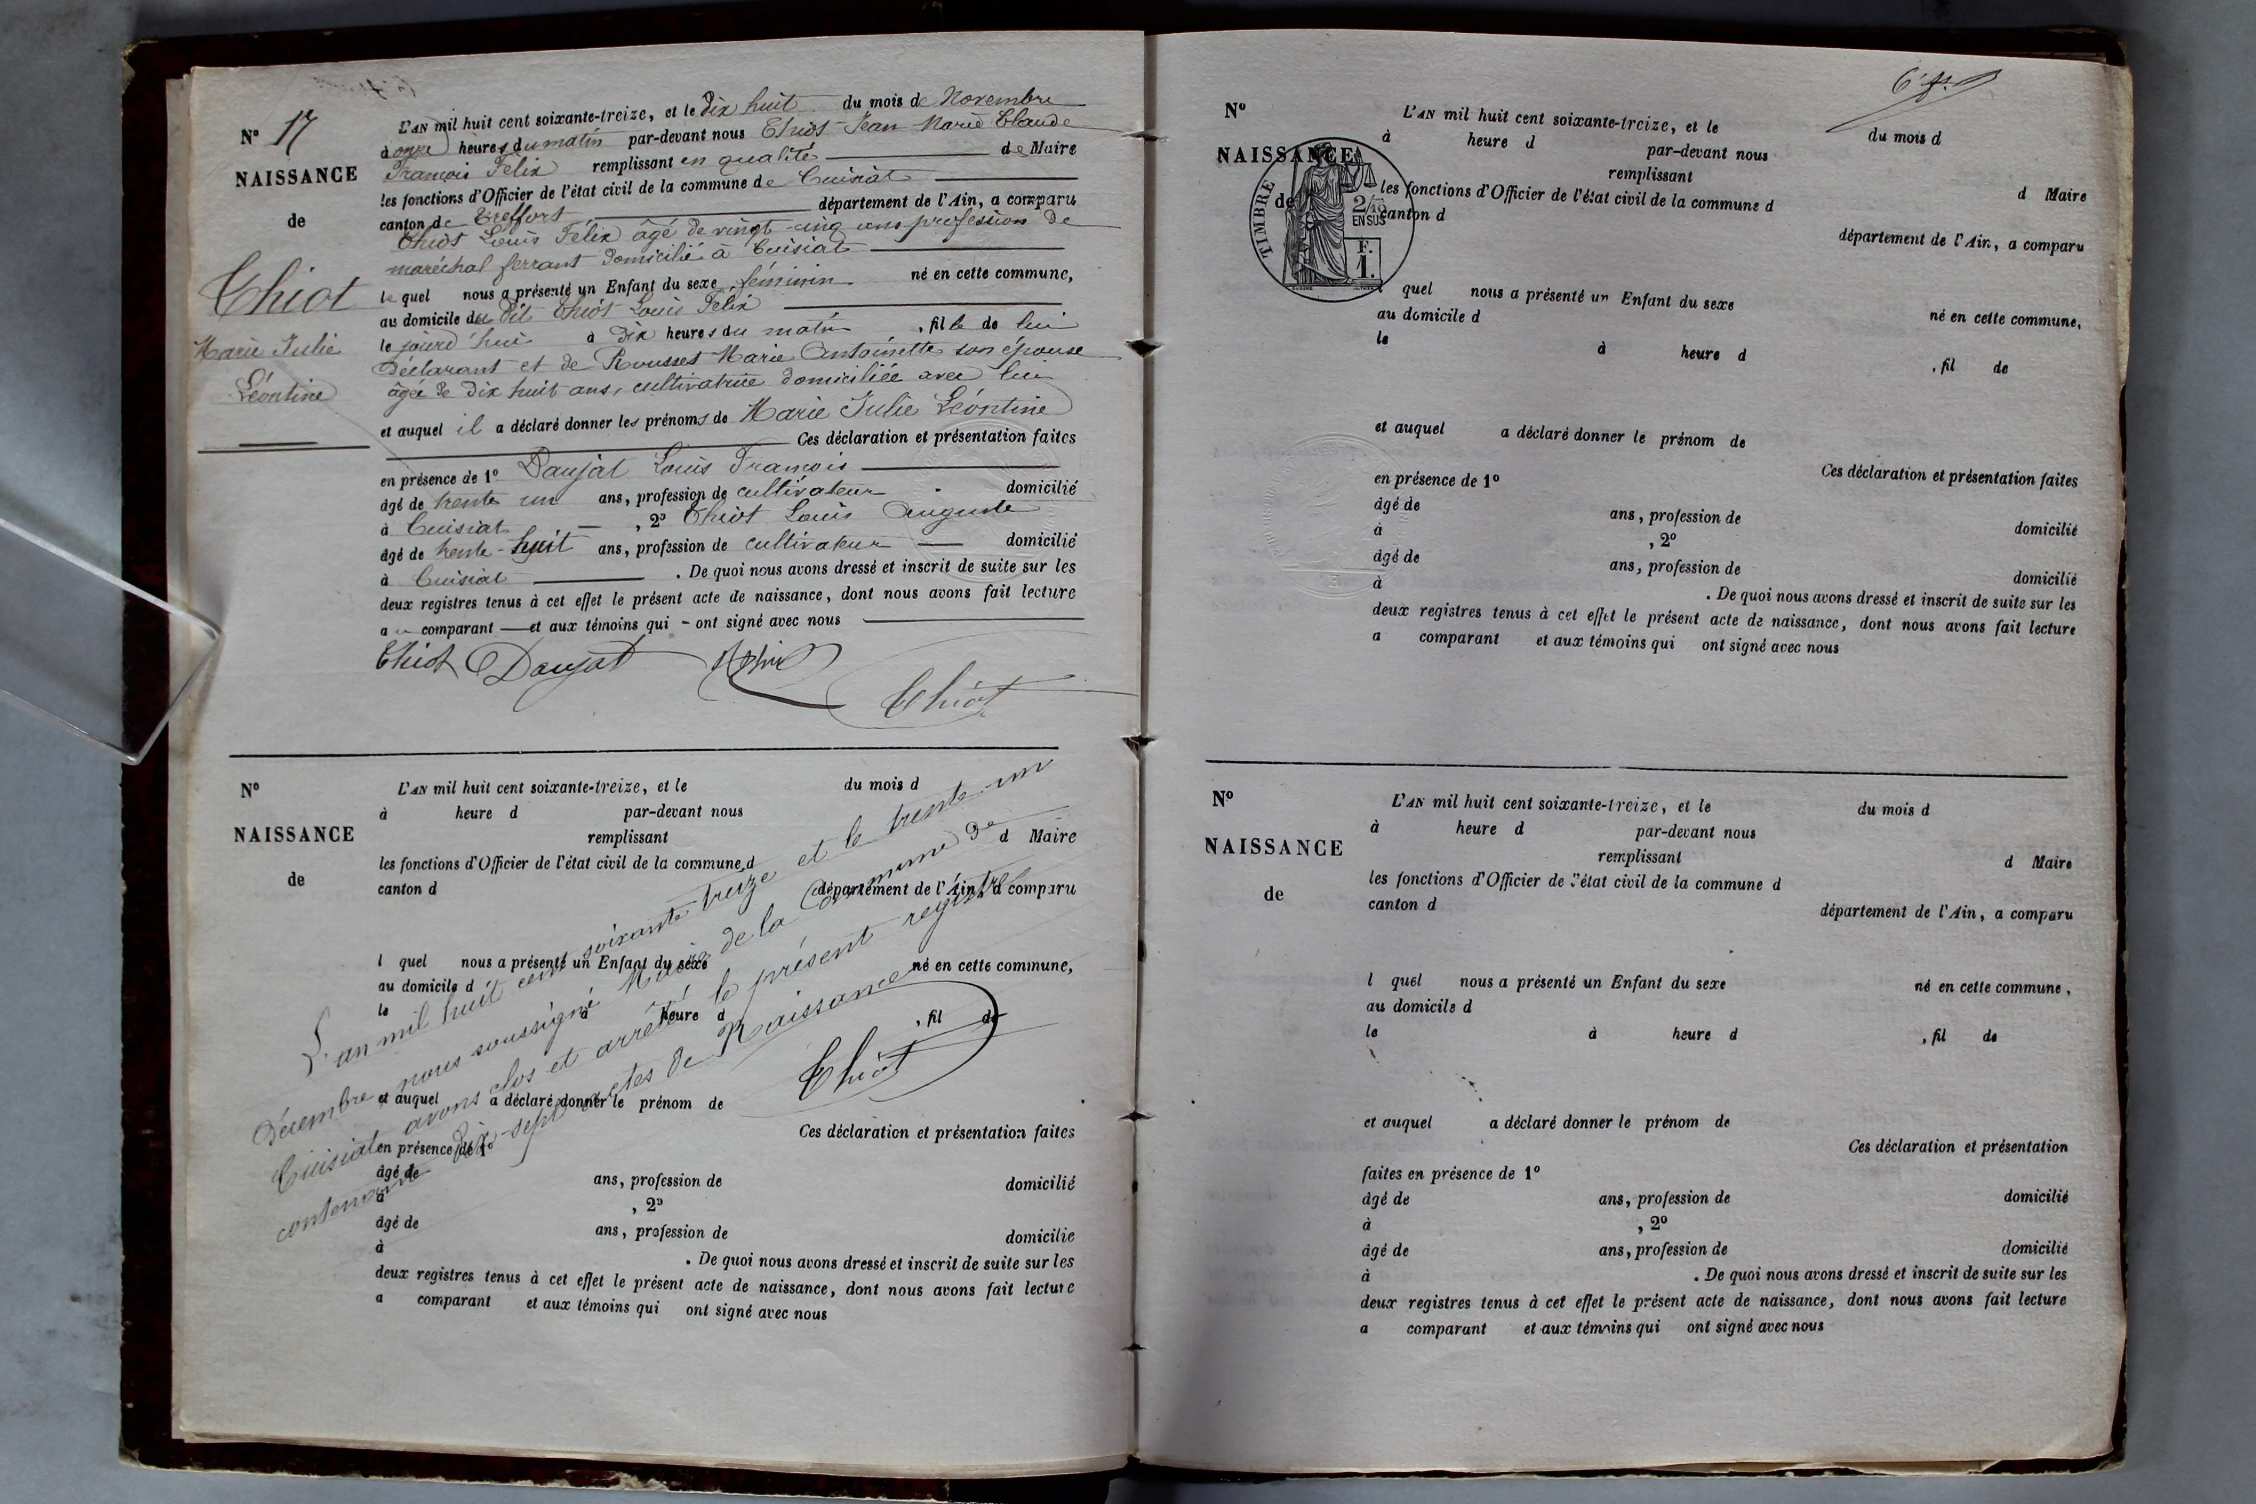 N° 17
NAISSANCE
de
Chiot
Marie Julie
Léontine
L'AN mil huit cent soixante-treize, et le Dix huit du mois de Novembre
à onze heures du matin par-devant nous Chiot Jean Marie Claude
François Félix remplissant en qualité de Maire
les fonctions d'Officier de l'état civil de la commune de Cuisiat
canton de Treffort département de l'Ain, a comparu
Chiot Louis Félix âgé de vingt-cinq ans profession de
maréchal ferrant domicilié à Cuisiat
lequel nous a présenté un Enfant du sexe féminin né en cette commune,
au domicile du dit Chiot Louis Félix
le jourd'hui à dix heures du matin, fille de lui
déclarant et de Rousset Marie Antoinette son épouse
âgée de Dix huit ans, cultivatrice domiciliée avec lui
et auquel il a déclaré donner les prénoms de Marie Julie Léontine
Ces déclaration et présentation faites
en présence de 1° Daujat Louis François
âgé de trente un ans, profession de cultivateur domicilié
à Cuisiat, 2° Chiot Louis Auguste
âgé de trente-huit ans, profession de cultivateur domicilié
à Cuisiat. De quoi nous avons dressé et inscrit de suite sur les
deux registres tenus à cet effet le présent acte de naissance, dont nous avons fait lecture
au comparant et aux témoins qui ont signé avec nous
Chiot Daujat
Chiot
N°
NAISSANCE
de
L'AN mil huit cent soixante-treize, et le du mois d
à heure d par-devant nous
remplissant d Maire
les fonctions d'Officier de l'état civil de la commune d
canton d département de l'Ain, a comparu
l quel nous a présenté un Enfant du sexe né en cette commune,
au domicile d
le à heure d , fil de
et auquel a déclaré donner le prénom de
Ces déclaration et présentation faites
en présence de 1°
âgé de ans, profession de domicilié
à , 2°
âgé de ans, profession de domicilié
à . De quoi nous avons dressé et inscrit de suite sur les
deux registres tenus à cet effet le présent acte de naissance, dont nous avons fait lecture
a comparant et aux témoins qui ont signé avec nous
L'an mil huit cent soixante treize et le trente-un
Décembre nous soussigné Maire de la Commune de
Cuisiat avons clos et arrêté le présent registre
contenant dix-sept actes de Naissance
Chiot
N°
NAISSANCE
de
TIMBRE
2/10
EN SUS
F.
1.
L'AN mil huit cent soixante-treize, et le du mois d
à heure d par-devant nous
remplissant d Maire
les fonctions d'Officier de l'état civil de la commune d
canton d département de l'Ain, a comparu
l quel nous a présenté un Enfant du sexe né en cette commune,
au domicile d
le à heure d , fil de
et auquel a déclaré donner le prénom de
Ces déclaration et présentation faites
en présence de 1°
âgé de ans, profession de domicilié
à , 2°
âgé de ans, profession de domicilié
à . De quoi nous avons dressé et inscrit de suite sur les
deux registres tenus à cet effet le présent acte de naissance, dont nous avons fait lecture
a comparant et aux témoins qui ont signé avec nous
N°
NAISSANCE
de
L'AN mil huit cent soixante-treize, et le du mois d
à heure d par-devant nous
remplissant d Maire
les fonctions d'Officier de l'état civil de la commune d
canton d département de l'Ain, a comparu
l quel nous a présenté un Enfant du sexe né en cette commune,
au domicile d
le à heure d , fil de
et auquel a déclaré donner le prénom de
Ces déclaration et présentation
faites en présence de 1°
âgé de ans, profession de domicilié
à , 2°
âgé de ans, profession de domicilié
à . De quoi nous avons dressé et inscrit de suite sur les
deux registres tenus à cet effet le présent acte de naissance, dont nous avons fait lecture
a comparant et aux témoins qui ont signé avec nous